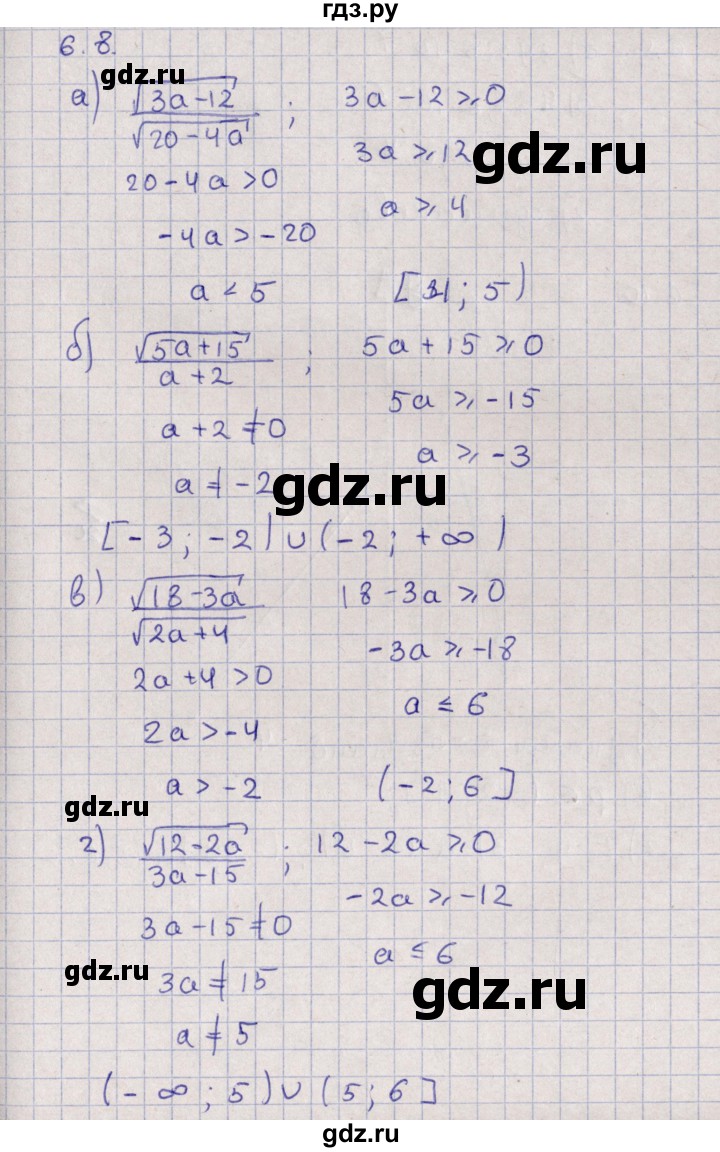 гдз.ру
6.8.
gdz.ru
а) √(3a-12) / √(20-4a) ; 3a-12 ⩾ 0
gdz.ru
20-4a > 0 3a ⩾ 12
-4a > -20 a ⩾ 4
a < 5 ; 5)
б) √(5a+15) / a+2 ; 5a+15 ⩾ 0
a+2 ≠ 0 5a ⩾ -15
a ≠ -2 a ⩾ -3
gdz.ru
[-3; -2) ∪ (-2; +∞)
в) √(18-3a) / √(2a+4) 18-3a ⩾ 0
2a+4 > 0 -3a ⩾ -18
2a > -4 a ≤ 6
a > -2 (-2; 6]
gdz.ru
г) √(12-2a) / 3a-15 ; 12-2a ⩾ 0
3a-15 ≠ 0 -2a ⩾ -12
gdz.ru
3a ≠ 15 a ≤ 6
gdz.ru
a ≠ 5
(-∞; 5) ∪ (5; 6]
gdz.ru